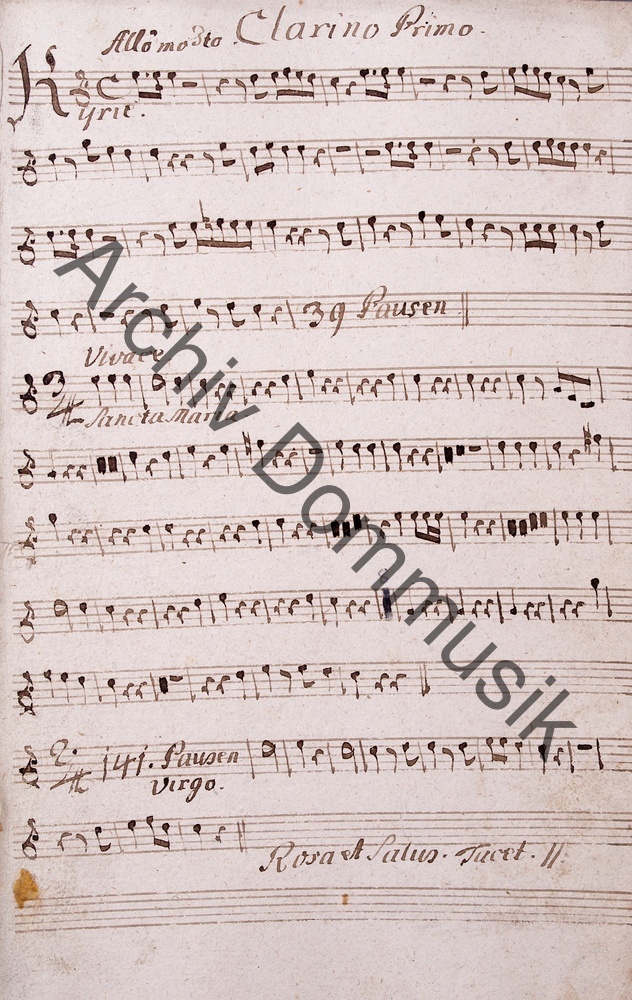 Allo mo3to. Clarino Primo.
C
Kyrie.
39 Pausen
Vivace
3/4
Sancta Maria
2/4 141. Pausen
Virgo.
Rosa et Salus. Tacet.
Archiv Dommusik